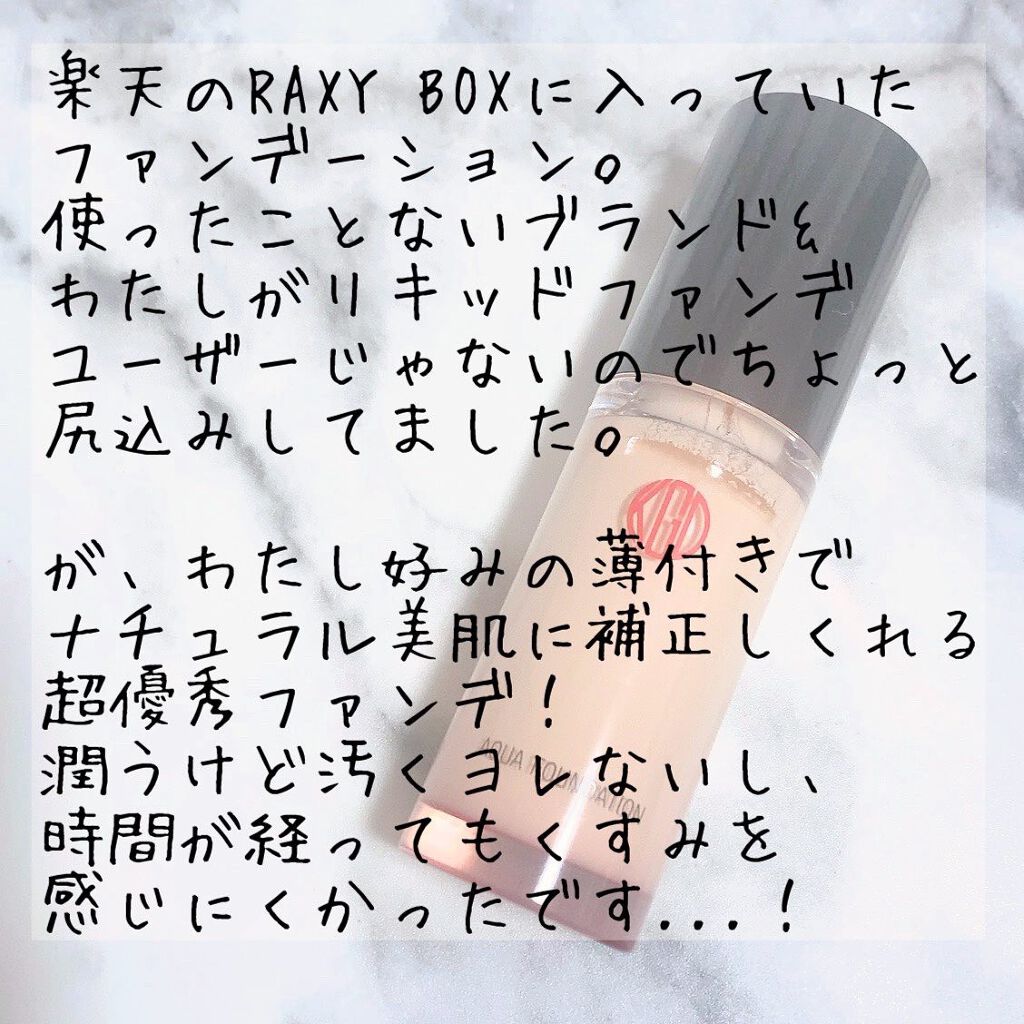 楽天のRAXY BOXに入っていた
ファンデーション。
使ったことないブランド&
わたしがリキッドファンデ
ユーザーじゃないのでちょっと
尻込みしてました。
が、わたし好みの薄付きで
ナチュラル美肌に補正しくれる
超優秀ファンデ!
潤うけど汚くヨレないし、
時間が経ってもくすみを
感じにくかったです...!
KGD
AQUA FOUNDATION